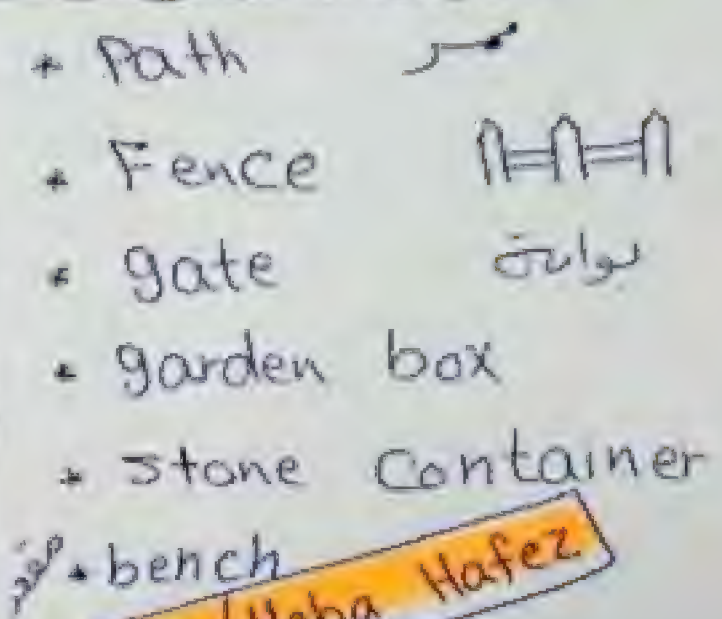 * Path ممر
* Fence
* gate بوابة
* garden box
* stone Container
* bench مقعد
Heba Hafez